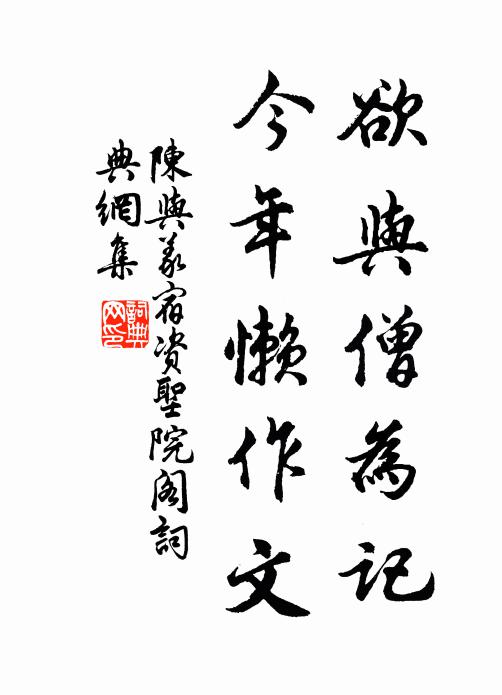 欲與僧為記
今年懶作文
陳與義宿資聖院閣詞
典網集
詞典網印